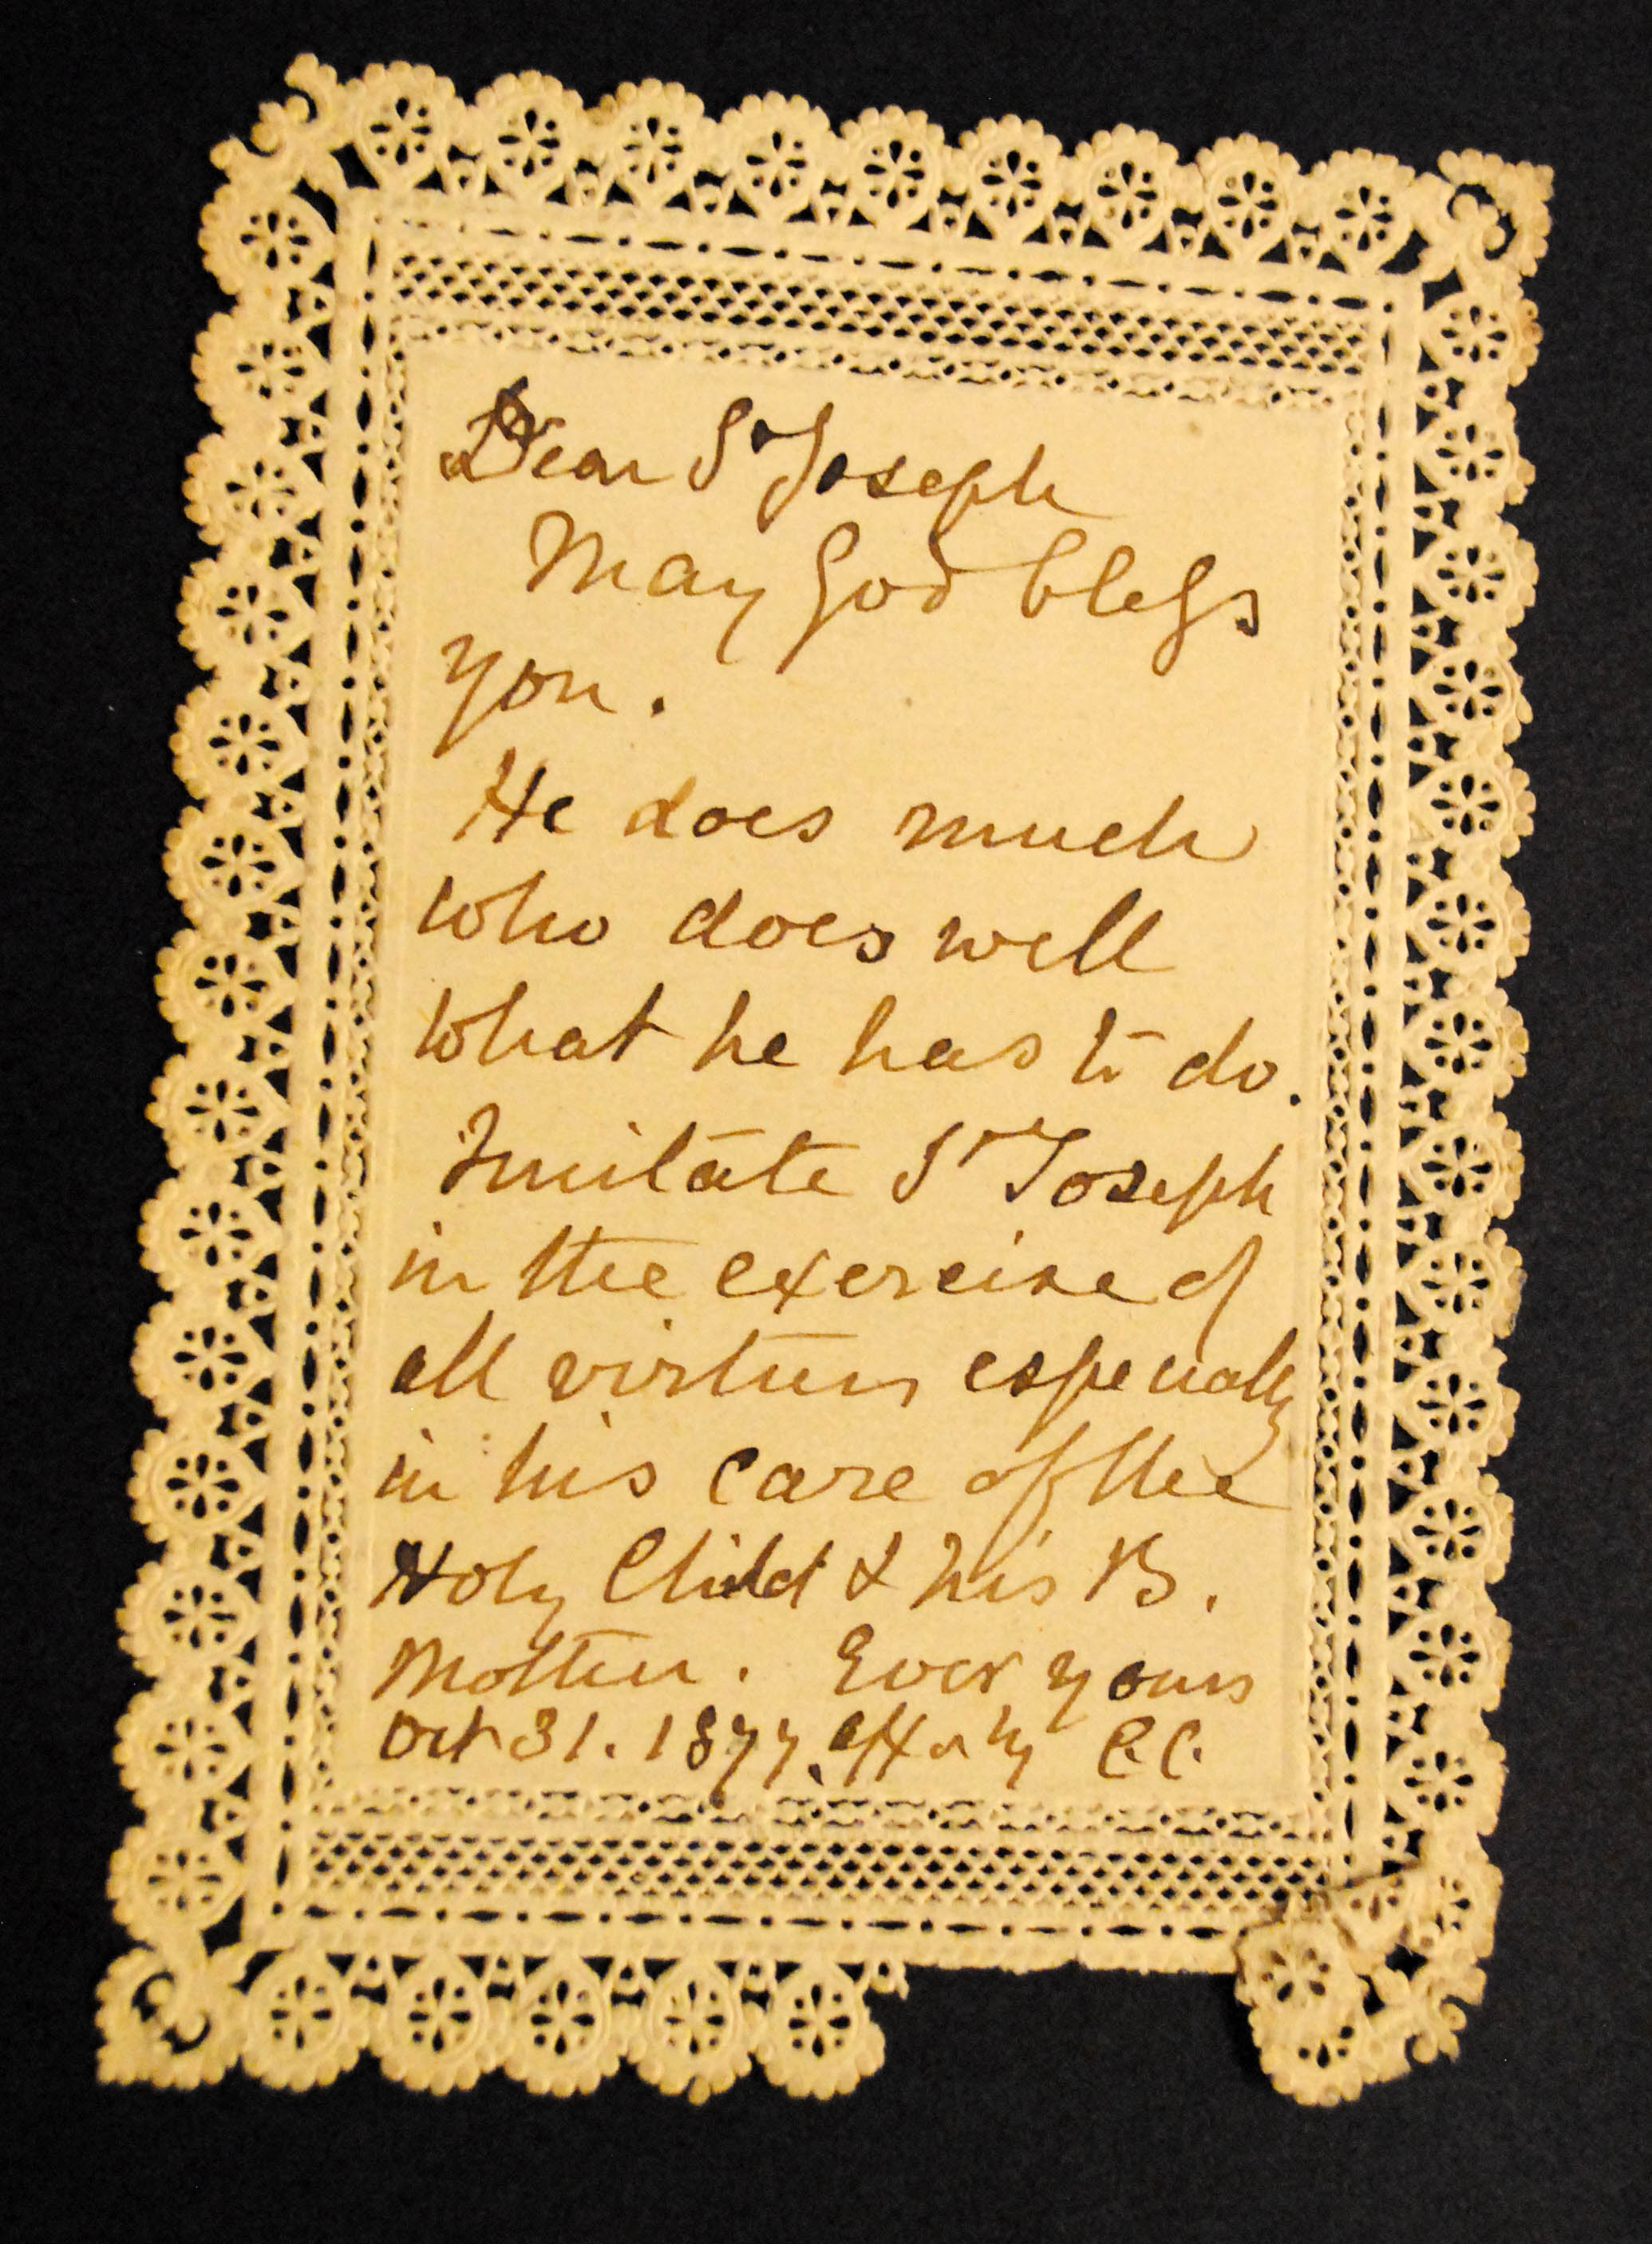 Dear St Joseph
May God bless
you.
He does much
who does well
what he has to do.
Imitate St Joseph
in the exercise of
all virtues especially
in his care of the
Holy Child & his B.
Mother. Ever yours
Oct 31. 1877. affly C.C.